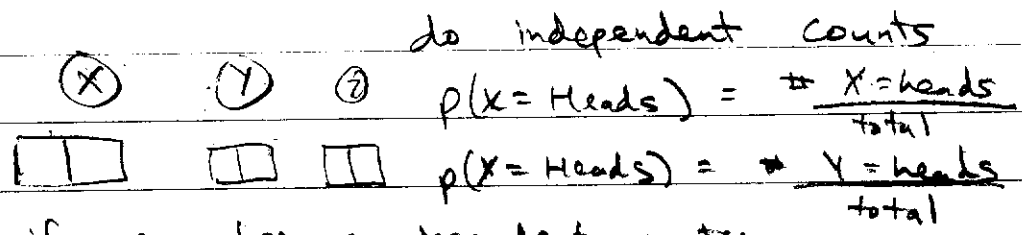 do independent counts
X Y Z p(X = Heads) = # X = heads / total
p(X = Heads) = # Y = heads / total
if